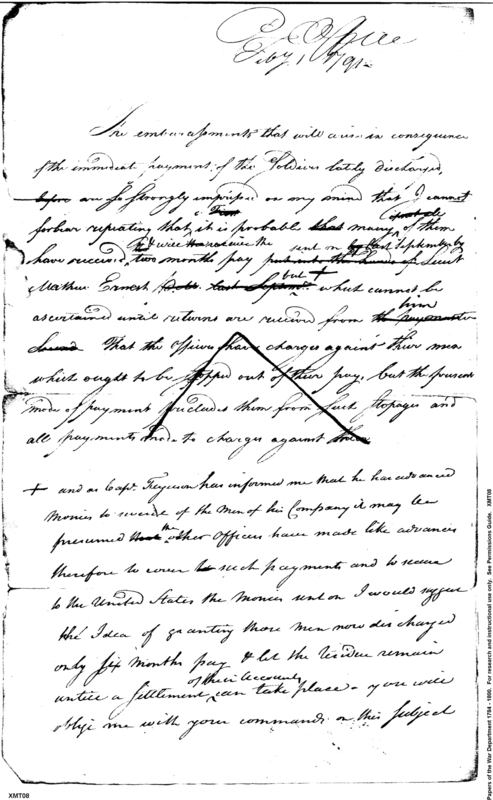 P. Office
Feby 1 1791
The embarassments that will arise in consequence
of the immediate payment, of the Soldiers lately discharged,
before are so strongly impressed on my mind that I cannot
forbear repeating that it is probable that many of them
have received two month pay sent on by last September by
put into the hands of Lieut
Mathew Ernest but + which cannot be
ascertained until returns are received from him
the paymaster
That the Officers have charges against their men
which ought to be stopped out of their pay, but the present
mode of payment precludes them from such stopages and
all payments made to charges against them
+ and as Capt. Ferguson has informed me that he has advanced
Monies to several of the Men of his Company it may be
presumed that the other Officers have made like advances
therefore to cover such payments and to secure
to the United States the Monies sent on I would suggest
the Idea of granting those men now discharged
only six months pay & let the residue remain
until a Settlement of their Accounts can take place - you will
oblige me with your commands on this subject
XMT08
Papers of the War Department 1784 - 1800. For research and instructional use only. See Permissions Guide. XMT08